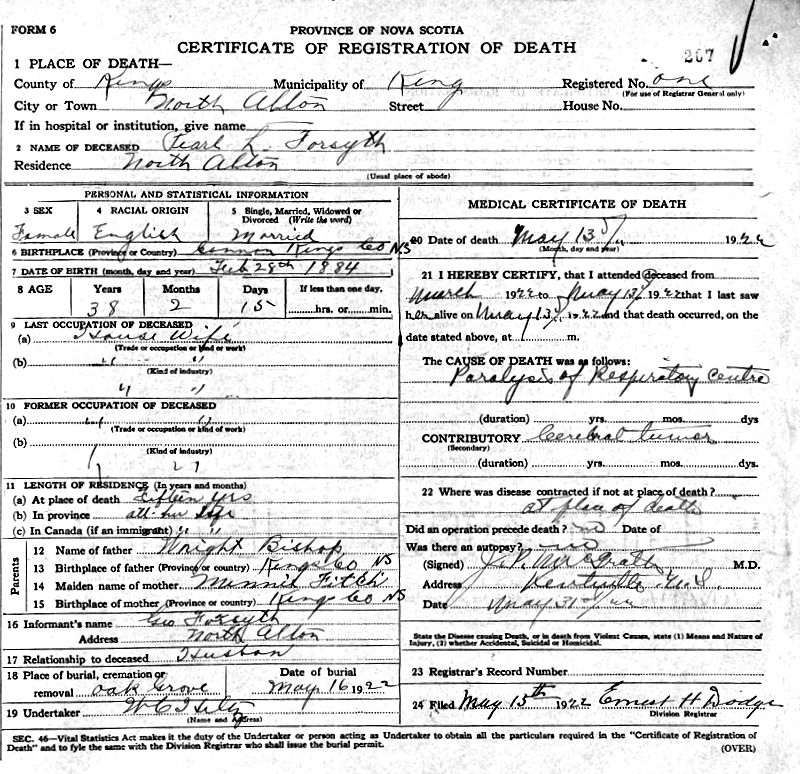 FORM 6
PROVINCE OF NOVA SCOTIA
CERTIFICATE OF REGISTRATION OF DEATH
207
1 PLACE OF DEATH—
County of Kings Municipality of King Registered No. one
(For use of Registrar General only)
City or Town North Alton Street House No.
If in hospital or institution, give name
2 NAME OF DECEASED Pearl L. Forsyth
Residence North Alton
(Usual place of abode)
PERSONAL AND STATISTICAL INFORMATION
3 SEX 4 RACIAL ORIGIN 5 Single, Married, Widowed or Divorced (Write the word)
Female English Married
6 BIRTHPLACE (Province or Country) Kings Co NS
7 DATE OF BIRTH (month, day and year) Feb 28th 1884
8 AGE Years Months Days If less than one day.
38 2 15 hrs. or min.
9 LAST OCCUPATION OF DECEASED
(a) House Wife
(Trade or occupation or kind of work)
(b) " "
(Kind of industry)
" "
10 FORMER OCCUPATION OF DECEASED
(a) " "
(Trade or occupation or kind of work)
(b)
(Kind of industry)
11 LENGTH OF RESIDENCE (In years and months)
(a) At place of death fifteen yrs
(b) In province all her life
(c) In Canada (if an immigrant) " "
Parents
12 Name of father Wright Bishop
13 Birthplace of father (Province or country) Kings Co NS
14 Maiden name of mother Minnie Fitch
15 Birthplace of mother (Province or country) Kings Co NS
16 Informant's name Geo Forsyth
Address North Alton
17 Relationship to deceased Husban
18 Place of burial, cremation or removal Oak Grove Date of burial May 16 1922
19 Undertaker
(Name and Address)
MEDICAL CERTIFICATE OF DEATH
20 Date of death May 13 1922
(Month, day and year)
21 I HEREBY CERTIFY, that I attended deceased from
March 1922 to May 13 1922 that I last saw
her alive on May 13 1922 and that death occurred, on the
date stated above, at m.
The CAUSE OF DEATH was as follows:
Paralysis of Respiratory Centre
(duration) yrs. mos. dys
CONTRIBUTORY Cerebral tumor
(Secondary)
(duration) yrs. mos. dys.
22 Where was disease contracted if not at place of death?
at place of death
Did an operation precede death? no Date of
Was there an autopsy? no
(Signed) J. P. McGrath M.D.
Address Kentville N.S.
Date May 31st/22
State the Disease causing Death, or in death from Violent Causes, state (1) Means and Nature of
Injury, (2) whether Accidental, Suicidal or Homicidal.
23 Registrar's Record Number
24 Filed May 15th 1922 Ernest H Dodge
Division Registrar
SEC. 46—Vital Statistics Act makes it the duty of the Undertaker or person acting as Undertaker to obtain all the particulars required in the "Certificate of Registration of
Death" and to fyle the same with the Division Registrar who shall issue the burial permit.
(OVER)